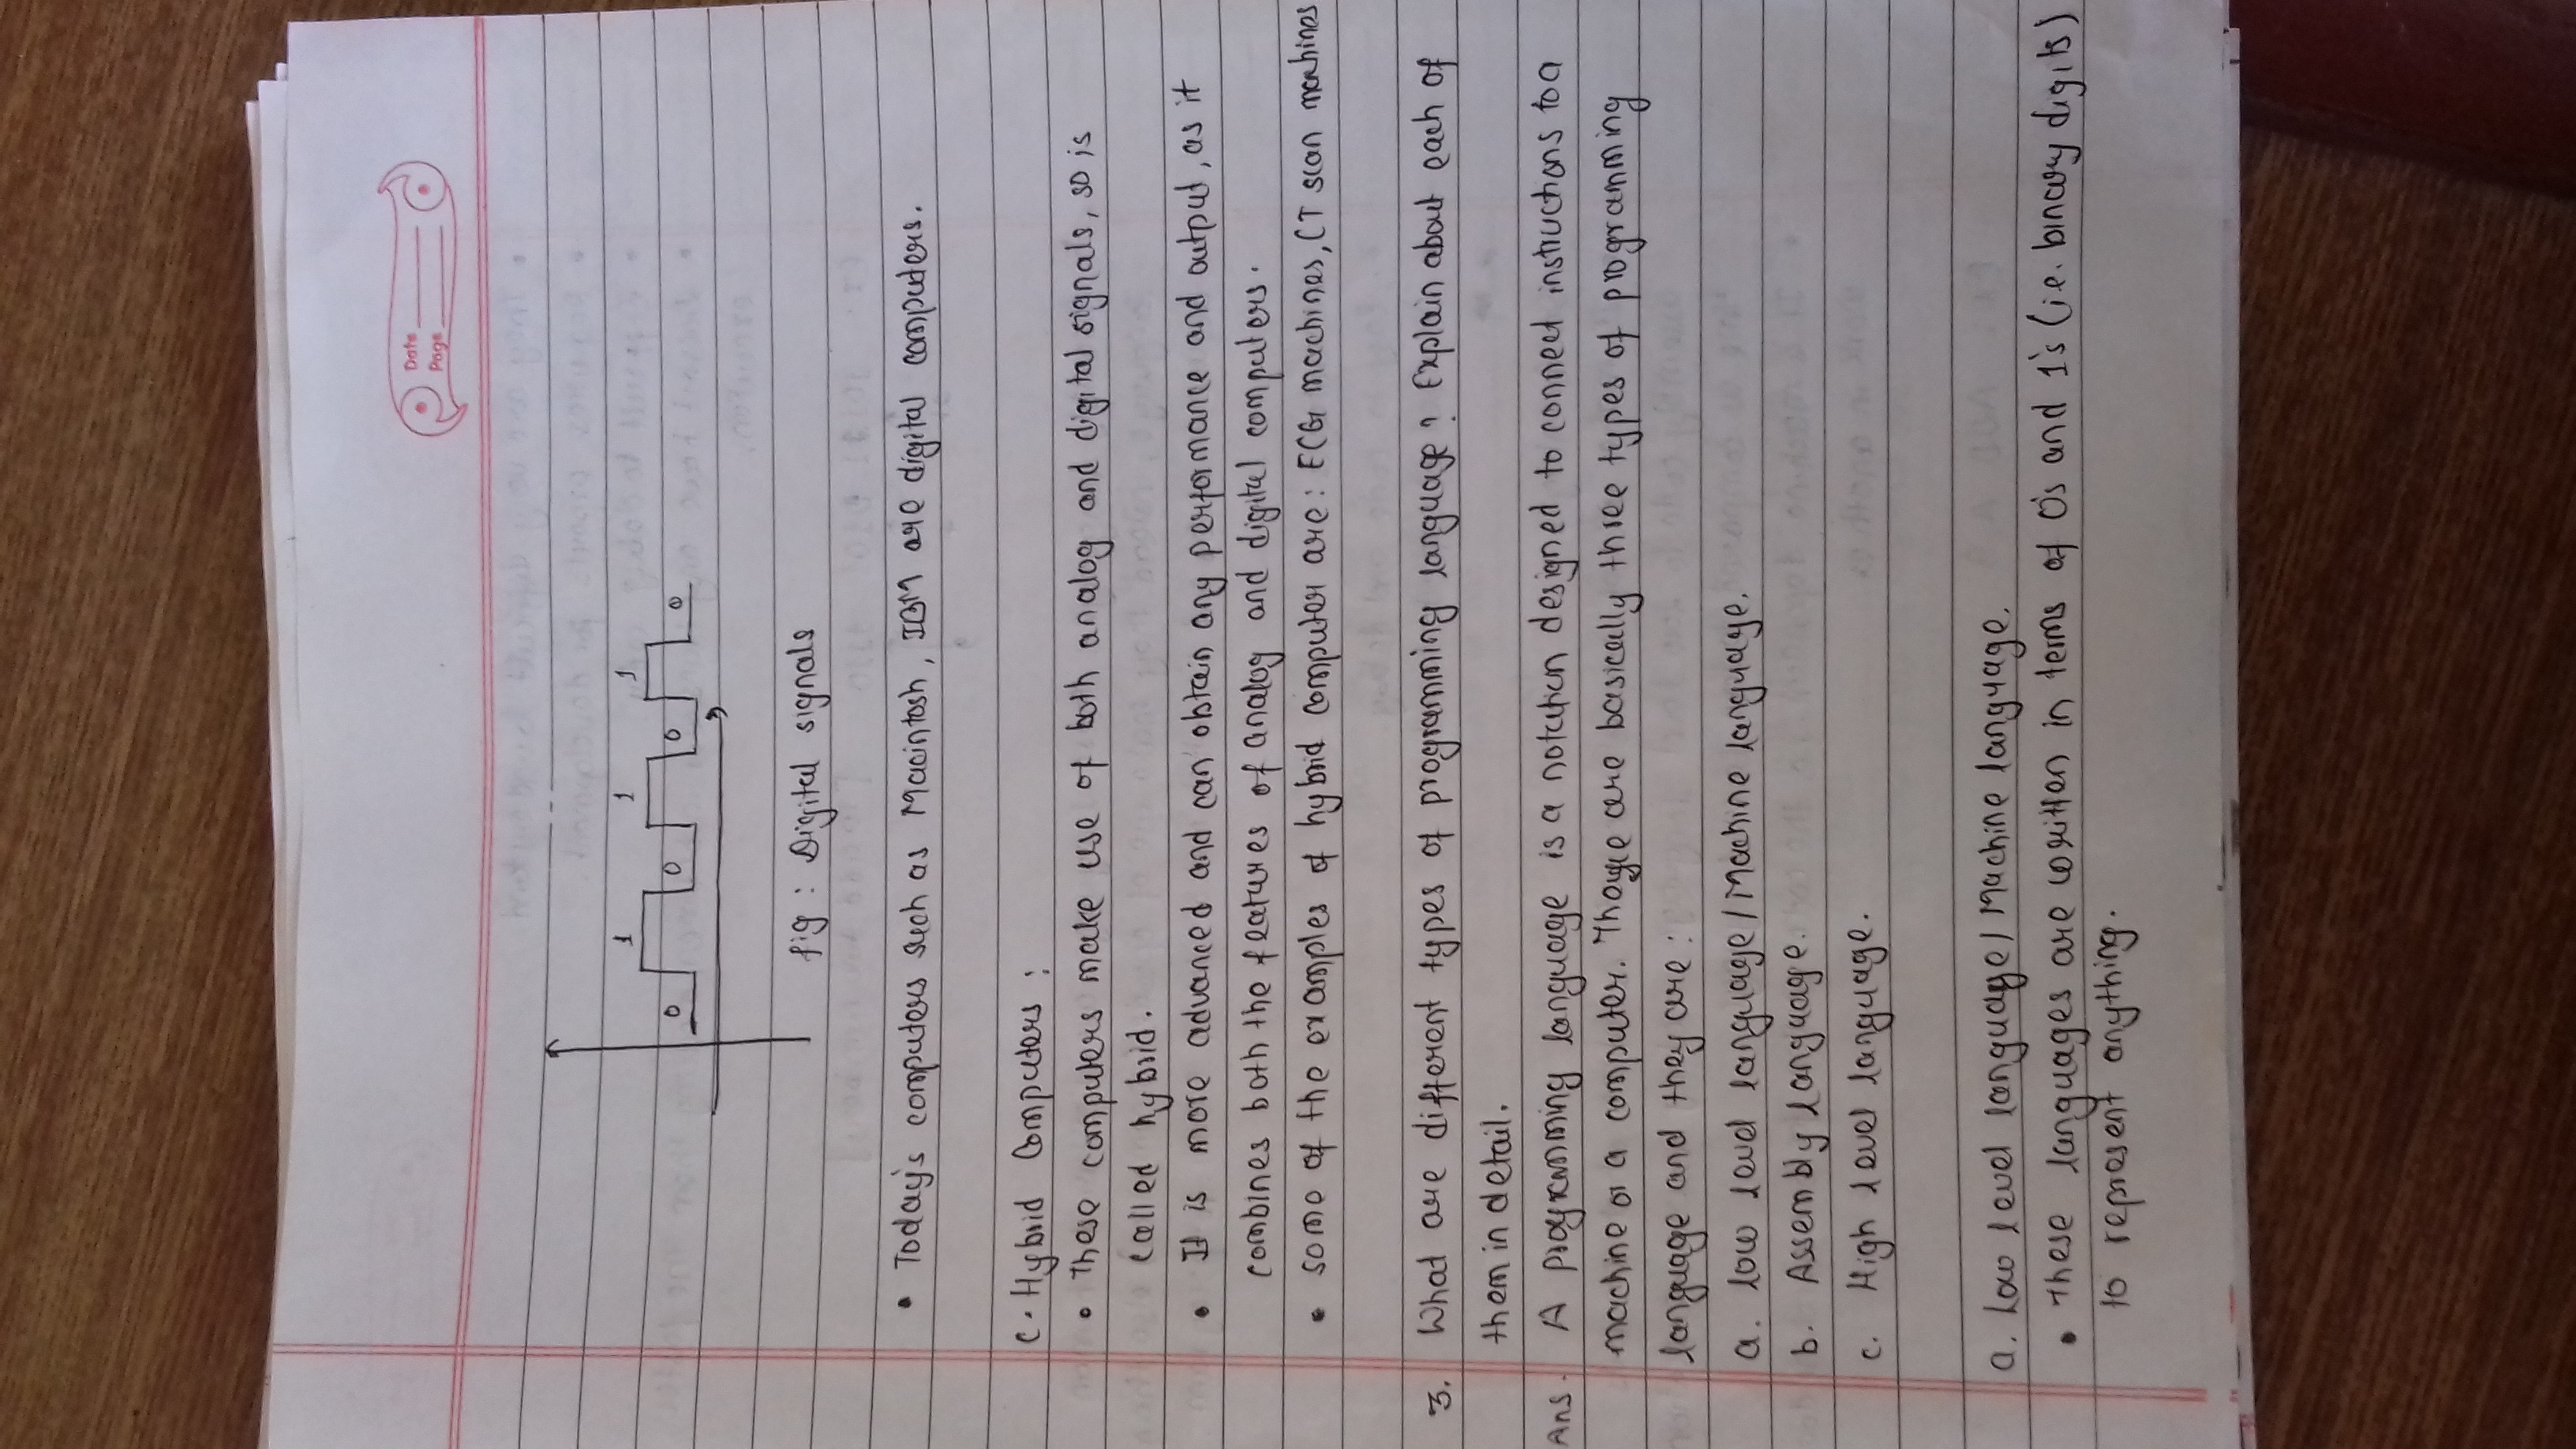 Date
Page
1 1 1
0 0 0 0
fig : Digital signals
• Today's computers such as Macintosh, IBM are digital computers.
C. Hybrid Computers :
• These computers make use of both analog and digital signals, so is
called hybrid.
• It is more advanced and can obtain any performance and output, as it
combines both the features of analog and digital computers.
• some of the examples of hybrid computer are: ECG machines, CT scan machines
3. What are different types of programming language? Explain about each of
them in detail.
Ans. A programming language is a notation designed to connect instructions to a
machine or a computer. are basically three types of programming
language and they are :
a. low level language/Machine language.
b. Assembly language.
c. High level language.
a. Low level language/Machine language.
• These languages are written in terms of 0's and 1's (i.e. binary digits)
to represent anything.